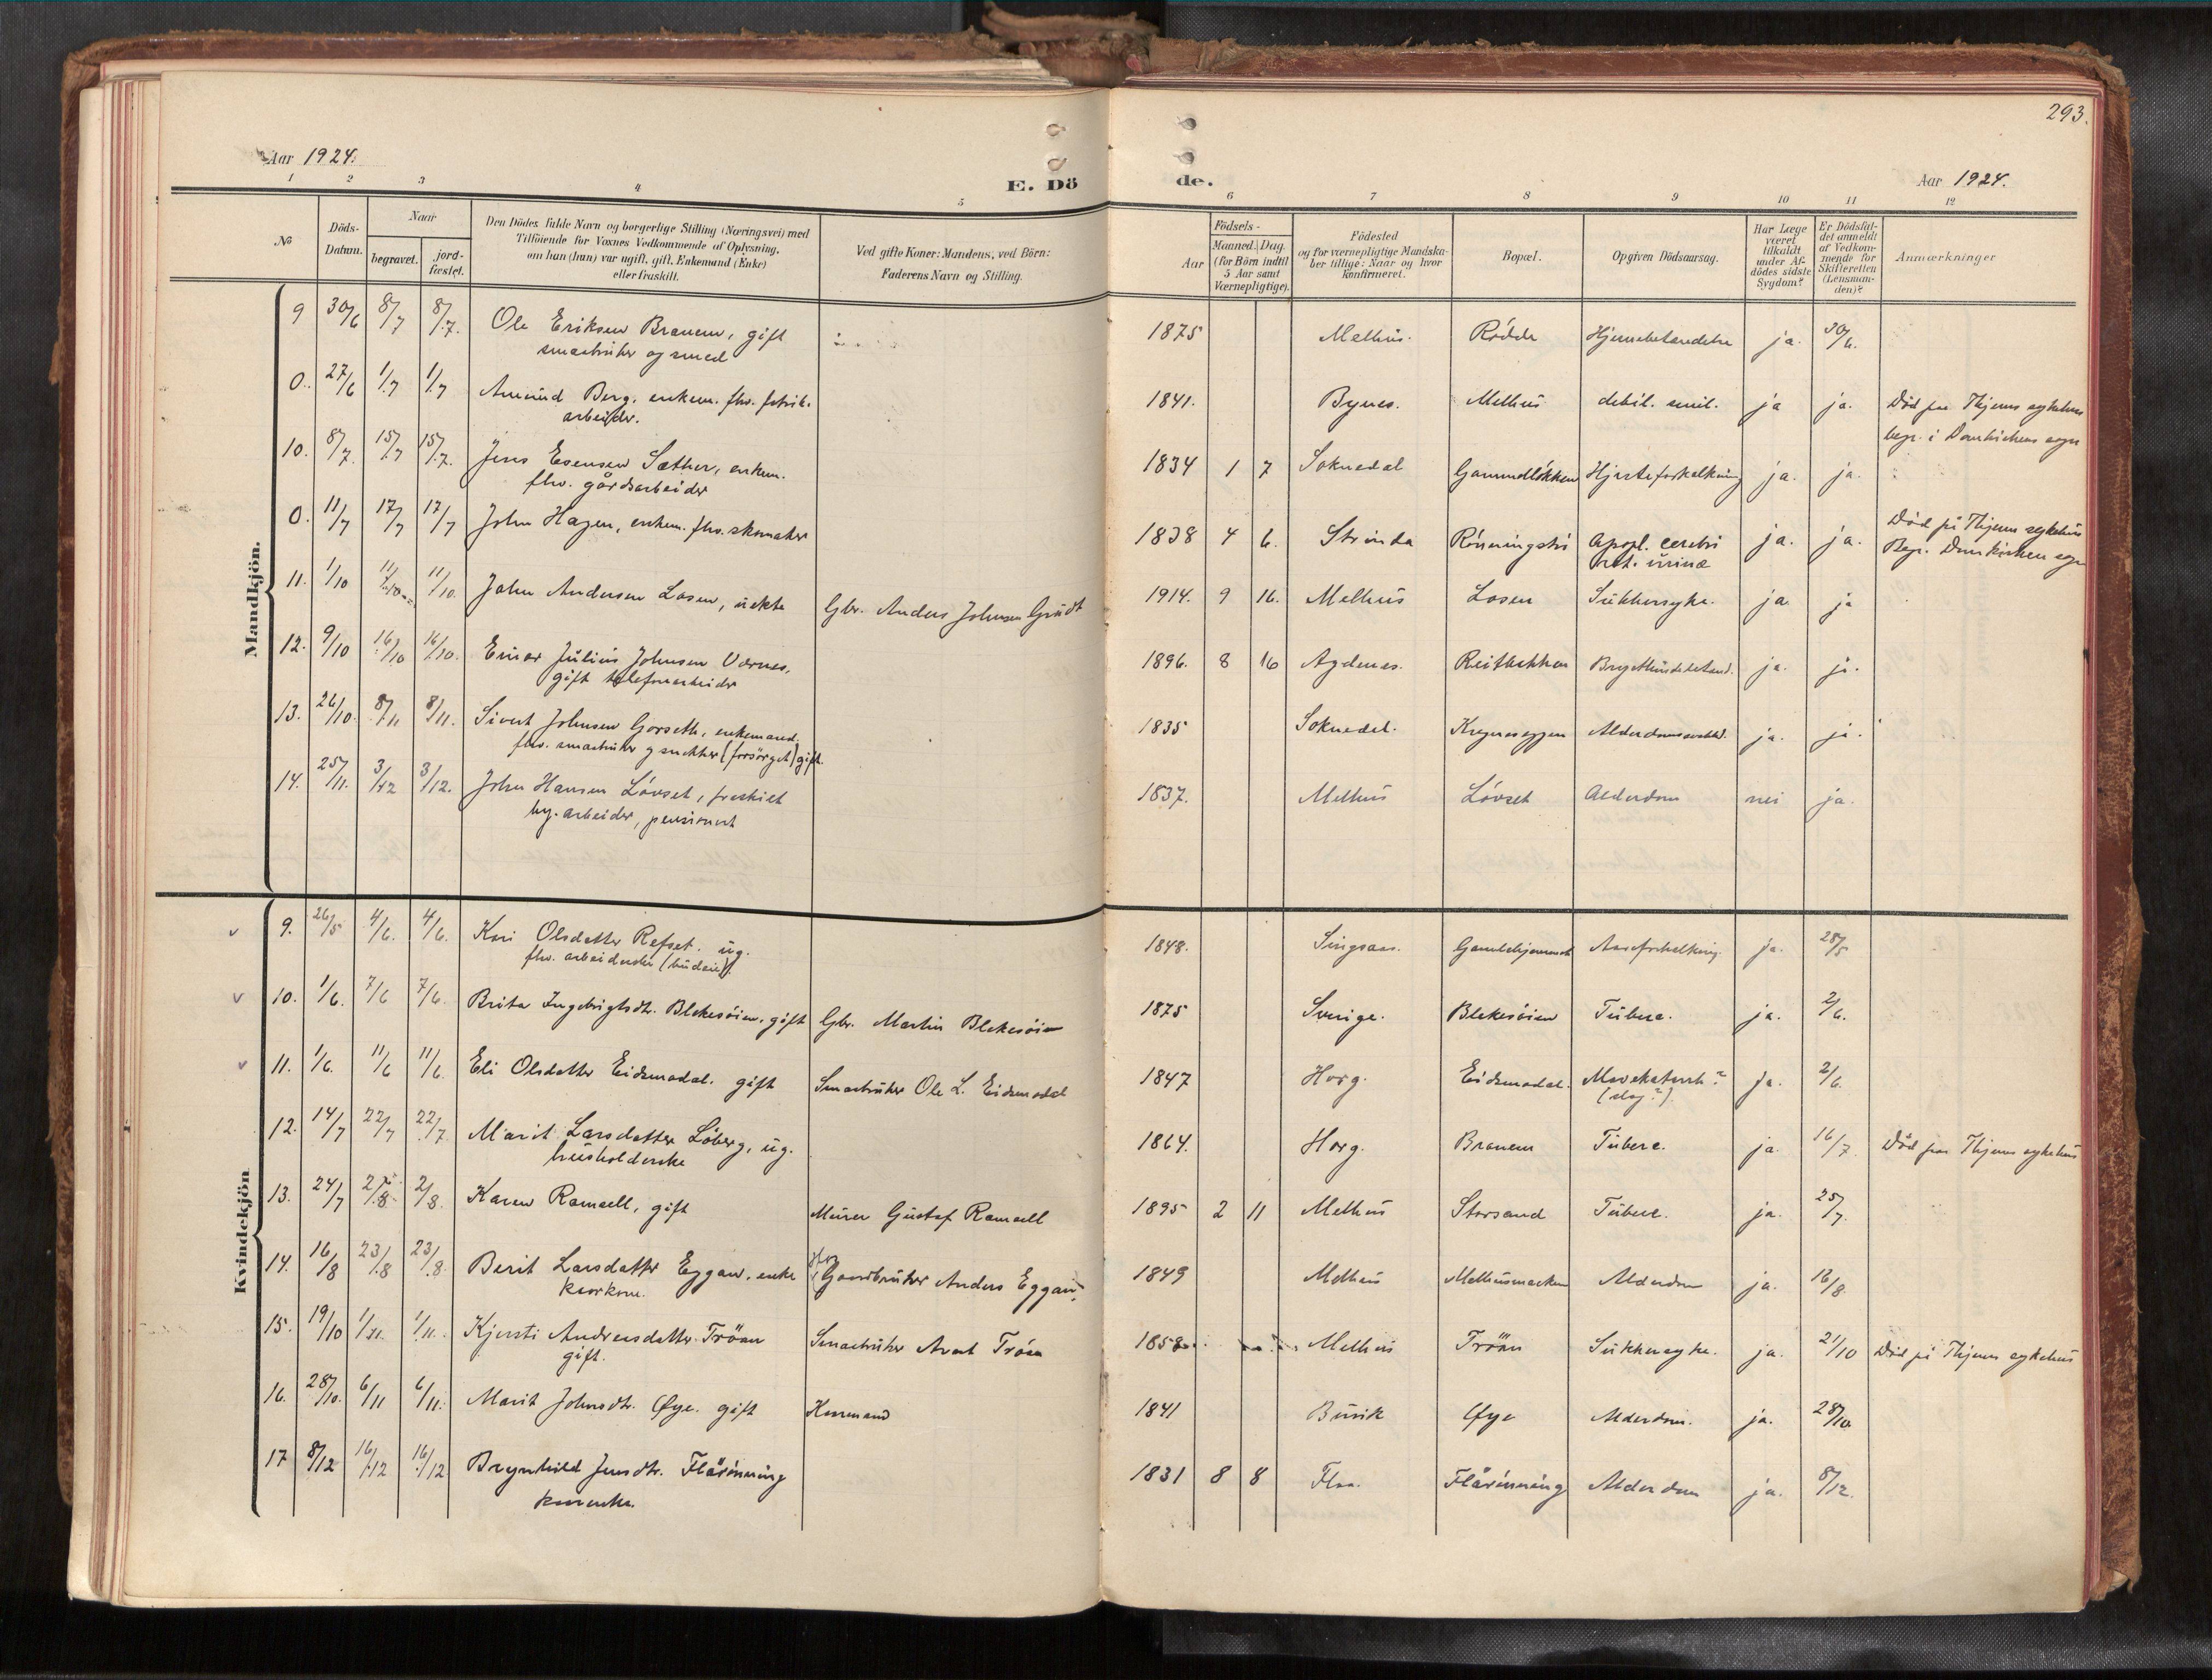 293.
Aar 1924.
E. Dö
de.
Aar 1924.
1 2 3 4 5 6 7 8 9 10 11 12
No
Döds-
Datum.
Naar
begravet.
jord-
fæstet.
Den Dödes fulde Navn og borgerlige Stilling (Næringsvei) med
Tilföiende for Voxnes Vedkommende af Oplysning,
om han (hun) var ugift, gift, Enkemand (Enke)
eller fraskilt.
Ved gifte Koner: Mandens, ved Börn:
Faderens Navn og Stilling.
Födsels-
Aar
Maaned. Dag.
(for Börn indtil
5 Aar samt
Værnepligtige).
Födested
og for værnepligtige Mandska-
ber tillige: Naar og hvor
konfirmeret.
Bopæl.
Opgiven Dödsaarsag.
Har Læge
været
tilkaldt
under Af-
dödes sidste
Sygdom?
Er Dödsfal-
det anmeldt
af Vedkom-
mende for
Skifteretten
(Lensman-
den)?
Anmærkninger
Mandkjön.
9 30/6 8/7 8/7. Ole Eriksen Brauem, gift 1875 Melhus. Rödde Hjernebetændelse ja. 30/6.
smaabruker og smed
0. 27/6 1/7 1/7 Amund Berg. enkem. fhv. fabrik. 1841. Bynes. Melhus debil. senil. ja ja. Död paa Thjems sykehus
arbeider. begr. i Domkirkens sogn
10. 8/7. 15/7 15/7. Jens Esensen Sæther, enkem. 1834 1 7 Soknedal Gammelløkken Hjerteforkalkning ja. ja.
fhv. gårdsarbeider
0. 11/7 17/7 17/7 John Hagen, enkem. fhv. skomaker 1838 4 6. Strinda Rønningstrø Apopl. cerebri ja. ja. Död på Thjems sykehus
ret. urinæ Begr. Domkirken sogn
11. 1/10 11/10 11/10. John Andersen Losen, uekte Gbr. Anders Johnsen Grudt 1914. 9 16. Melhus Losen Sukkersyke. ja. ja
12. 9/10 16/10 16/10. Einar Julius Johnsen Værnes, 1896. 8 16 Agdenes. Reitbakken Brysthindebetænd. ja. ja.
gift telefonarbeider
13. 26/10. 8/11 8/11. Sivert Johnsen Gorseth, enkemand. 1835 Soknedal. ja. ja.
fhv. smaabruker og snekker (forsörget) gift.
14. 25/11. 3/12 3/12. John Hansen Løvset, fraskilt 1837. Melhus Løvset Alderdom nei ja.
by. arbeider, pensionert
Kvindekjön
9. 26/5 4/6. 4/6. Kari Olsdatter Refset. ug. 1848. Singsaas. Aareforkalkning. ja. 28/5
fhv. arbeiderske (budeie).
10. 1/6. 7/6 7/6. Brita Ingebrigtsdtr. Blekesøien. gift Gbr. Martin Blekesøien 1875 Sverige. Blekesøien Tuberc. ja. 2/6.
11. 1/6. 11/6 11/6. Eli Olsdatter Eidsmodal. gift Smaabruker Ole L. Eidsmodal 1847 Horg. Eidsmodal. Mavekatarrh? ja. 2/6.
(slag?)
12. 14/7 22/7 22/7 Marit Larsdatter Løberg, ug. 1864. Horg. Brauem Tuberc. ja 16/7. Död paa Thjems sykehus
husholderske
13. 24/7 2/8. 2/8. Karen Ramsell, gift Murer Gustaf Ramsell 1895 2 11 Melhus Storsand Tuberc. ja. 25/7.
14. 16/8 23/8 23/8. Berit Larsdatter Eggan, enke Gaardbruker Anders Eggan. 1849 Melhus Melhusmarken Alderdom ja. 18/8.
kaarkone.
15. 19/10 1/11. 1/11. Kjersti Andreasdatter Tröan Smaabruker Arnt Tröan 1858 Melhus Tröan Sukkersyke. ja. 21/10 Död på Thjems sykehus
gift.
16. 28/10. 6/11 6/11. Marit Johnsdtr. Øye. gift Kaarmand 1841 Buvik Øye Alderdom. ja. 28/10.
17 8/12 16/12 16/12 Brynhild Jensdtr. Flårønning 1831 8 8 Flaa. Flårønning Alderdom ja. 8/12.
kaarenke.